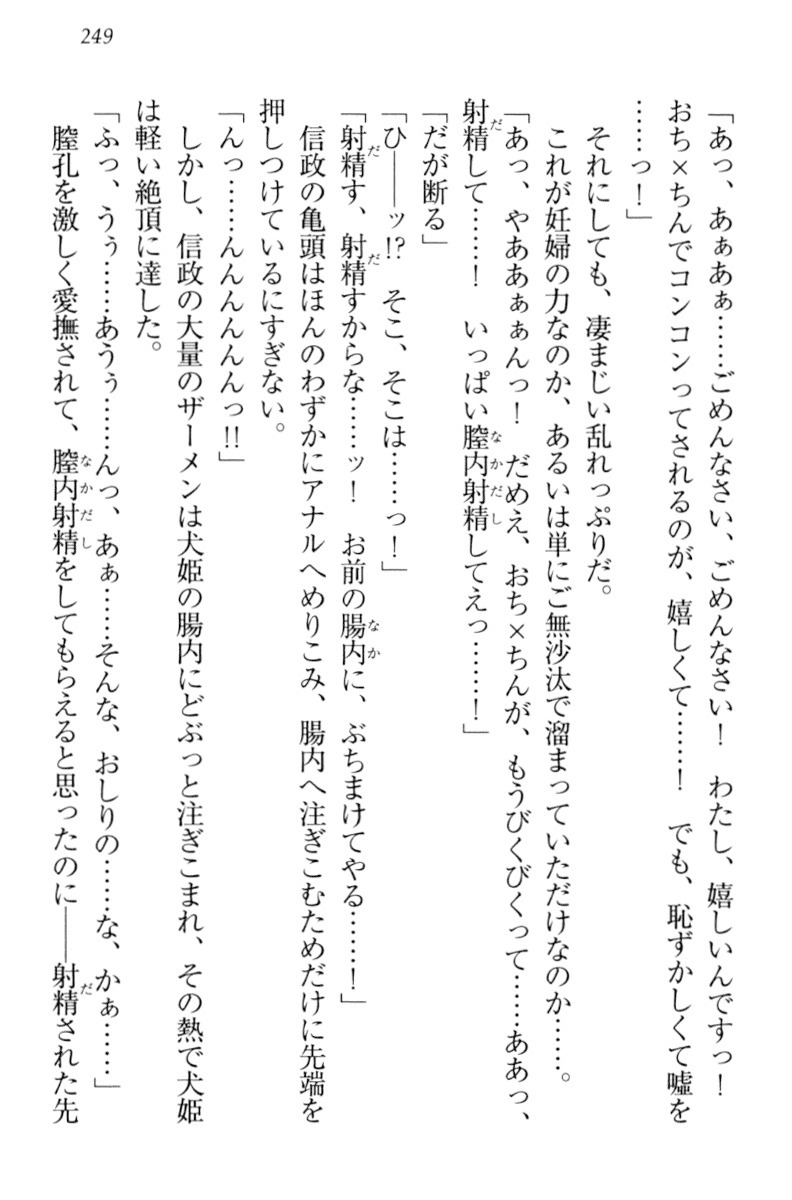 249
「あっ、あぁあぁ……ごめんなさい、ごめんなさい！　わたし、嬉しいんですっ！
おち×ちんでコンコンってされるのが、嬉しくて……！　でも、恥ずかしくて嘘を
……っ！」
　それにしても、凄まじい乱れっぷりだ。
　これが妊婦の力なのか、あるいは単にご無沙汰で溜まっていただけなのか……。
「あっ、やああぁぁんっ！　だめえ、おち×ちんが、もうびくびくって……ああっ、
射精して……！　いっぱい膣内射精してえっ……！」
「だが断る」
「ひ――ッ!?　そこ、そこは……っ！」
「射精す、射精すからな……ッ！　お前の腸内に、ぶちまけてやる……！」
　信政の亀頭はほんのわずかにアナルへめりこみ、腸内へ注ぎこむためだけに先端を
押しつけているにすぎない。
「んっ……んんんんんんっ!!」
　しかし、信政の大量のザーメンは犬姫の腸内にどぶっと注ぎこまれ、その熱で犬姫
は軽い絶頂に達した。
「ふっ、うぅ……あうぅ……んっ、あぁ……そんな、おしりの……な、かぁ……」
　膣孔を激しく愛撫されて、膣内射精をしてもらえると思ったのに――射精された先